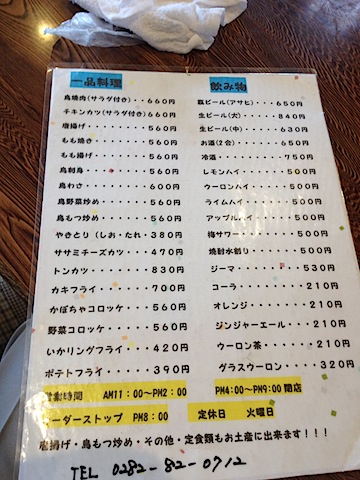 一品料理
鳥焼肉(サラダ付き)・・660円
チキンカツ(サラダ付き)660円
唐揚げ・・・・・・560円
もも焼き・・・・・560円
もも揚げ・・・・・560円
鳥刺身・・・・・・560円
鳥わさ・・・・・・600円
鳥野菜炒め・・・・560円
鳥もつ炒め・・・・560円
やきとり(しお・たれ・380円
ササミチーズカツ・・470円
トンカツ・・・・・830円
カキフライ・・・・700円
かぼちゃコロッケ・・560円
野菜コロッケ・・・560円
いかリングフライ・・420円
ポテトフライ・・・390円
飲み物
瓶ビール(アサヒ)・・・650円
生ビール(大)・・・・840円
生ビール(中)・・・・630円
お酒(2合)・・・・・650円
冷酒・・・・・・・750円
レモンハイ・・・・・500円
ウーロンハイ・・・・500円
ライムハイ・・・・・500円
アップルハイ・・・・500円
梅サワー・・・・・・500円
焼酎水割り・・・・・500円
ジーマ・・・・・・530円
コーラ・・・・・・210円
オレンジ・・・・・・210円
ジンジャーエール・・・210円
ウーロン茶・・・・・210円
グラスウーロン・・・・320円
営業時間 AM11:00~PM2:00 PM4:00~PM9:00閉店
オーダーストップ PM8:00 定休日 火曜日
唐揚げ・鳥もつ炒め・その他・定食類もお土産に出来ます!!!
TEL 0282-82-0712